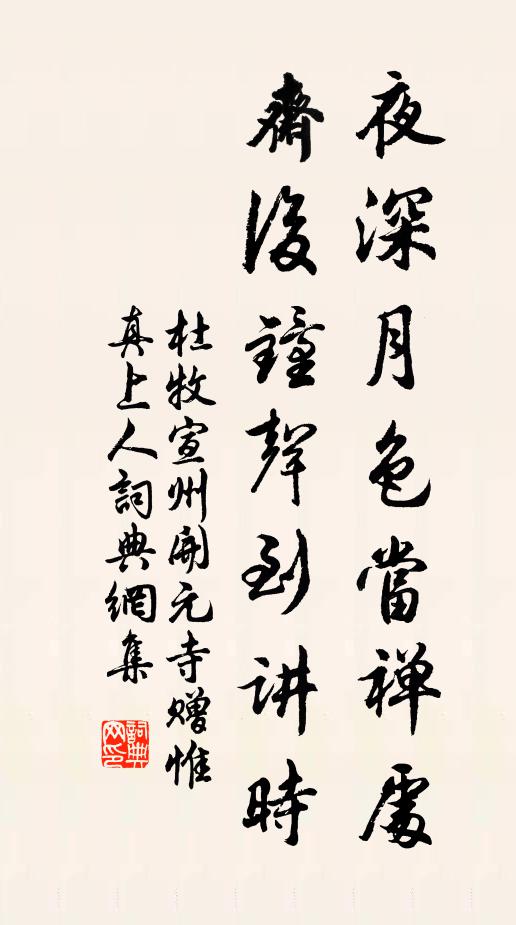 夜深月色當禪處
齋後鐘聲到讲時
杜牧宣州開元寺贈惟
真上人詞典網集
詞典網印